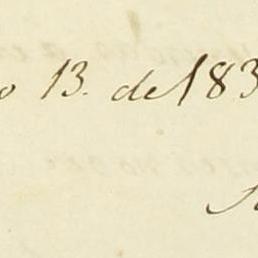 o 13. de 183